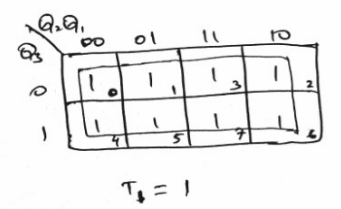 Q₂Q₁
00 01 11 10
Q₃
0 1 0 1 1 1 3 1 2
1 1 4 1 5 1 7 1 6
T₁ = 1